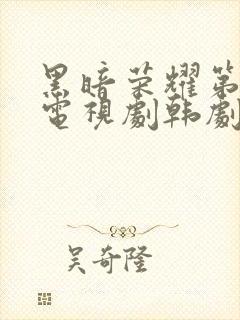 黑暗荣耀第
電視劇韩劇
吴奇隆